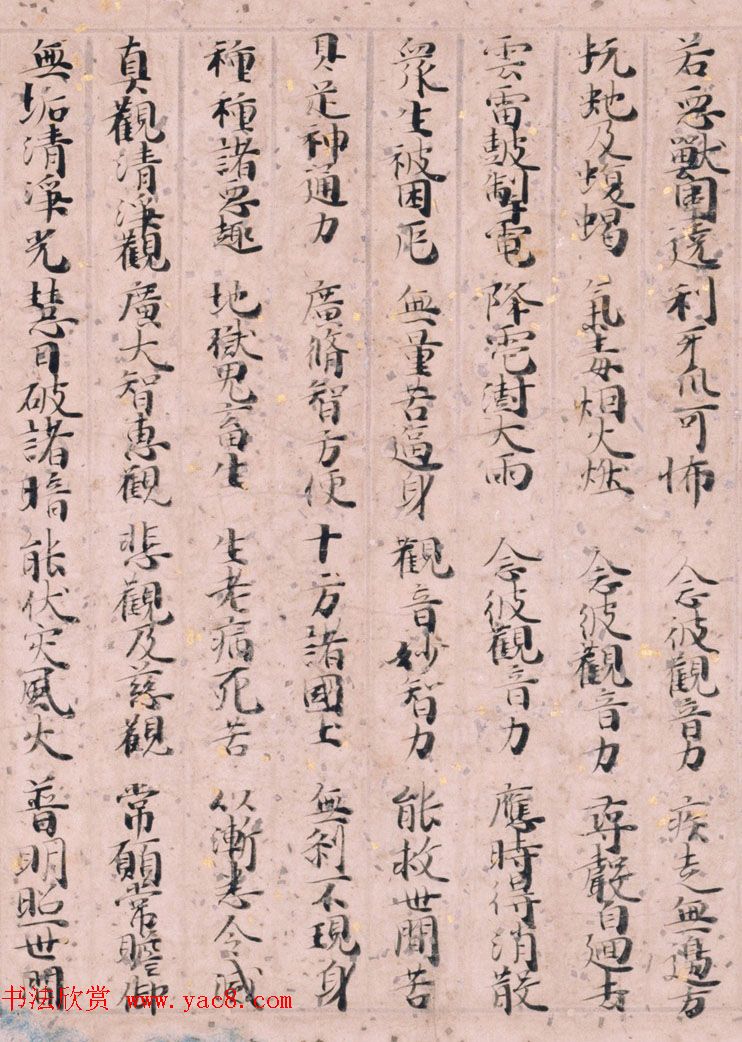 若惡獸圍遶利牙爪可怖念彼觀音力疾走無邊方
蚖虵及蝮蝎氣毒烟火燃念彼觀音力尋聲自迴去
雲雷皷掣電降雹澍大雨念彼觀音力應時得消散
眾生被困厄無量苦逼身觀音妙智力能救世間苦
具足神通力廣脩智方便十方諸國土無刹不現身
種種諸惡趣地獄鬼畜生生老病死苦以漸悉令滅
真觀清淨觀廣大智惠觀悲觀及慈觀常願常瞻仰
無垢清淨光慧日破諸暗能伏灾風火普明照世間
书法欣赏 www.yac8.com